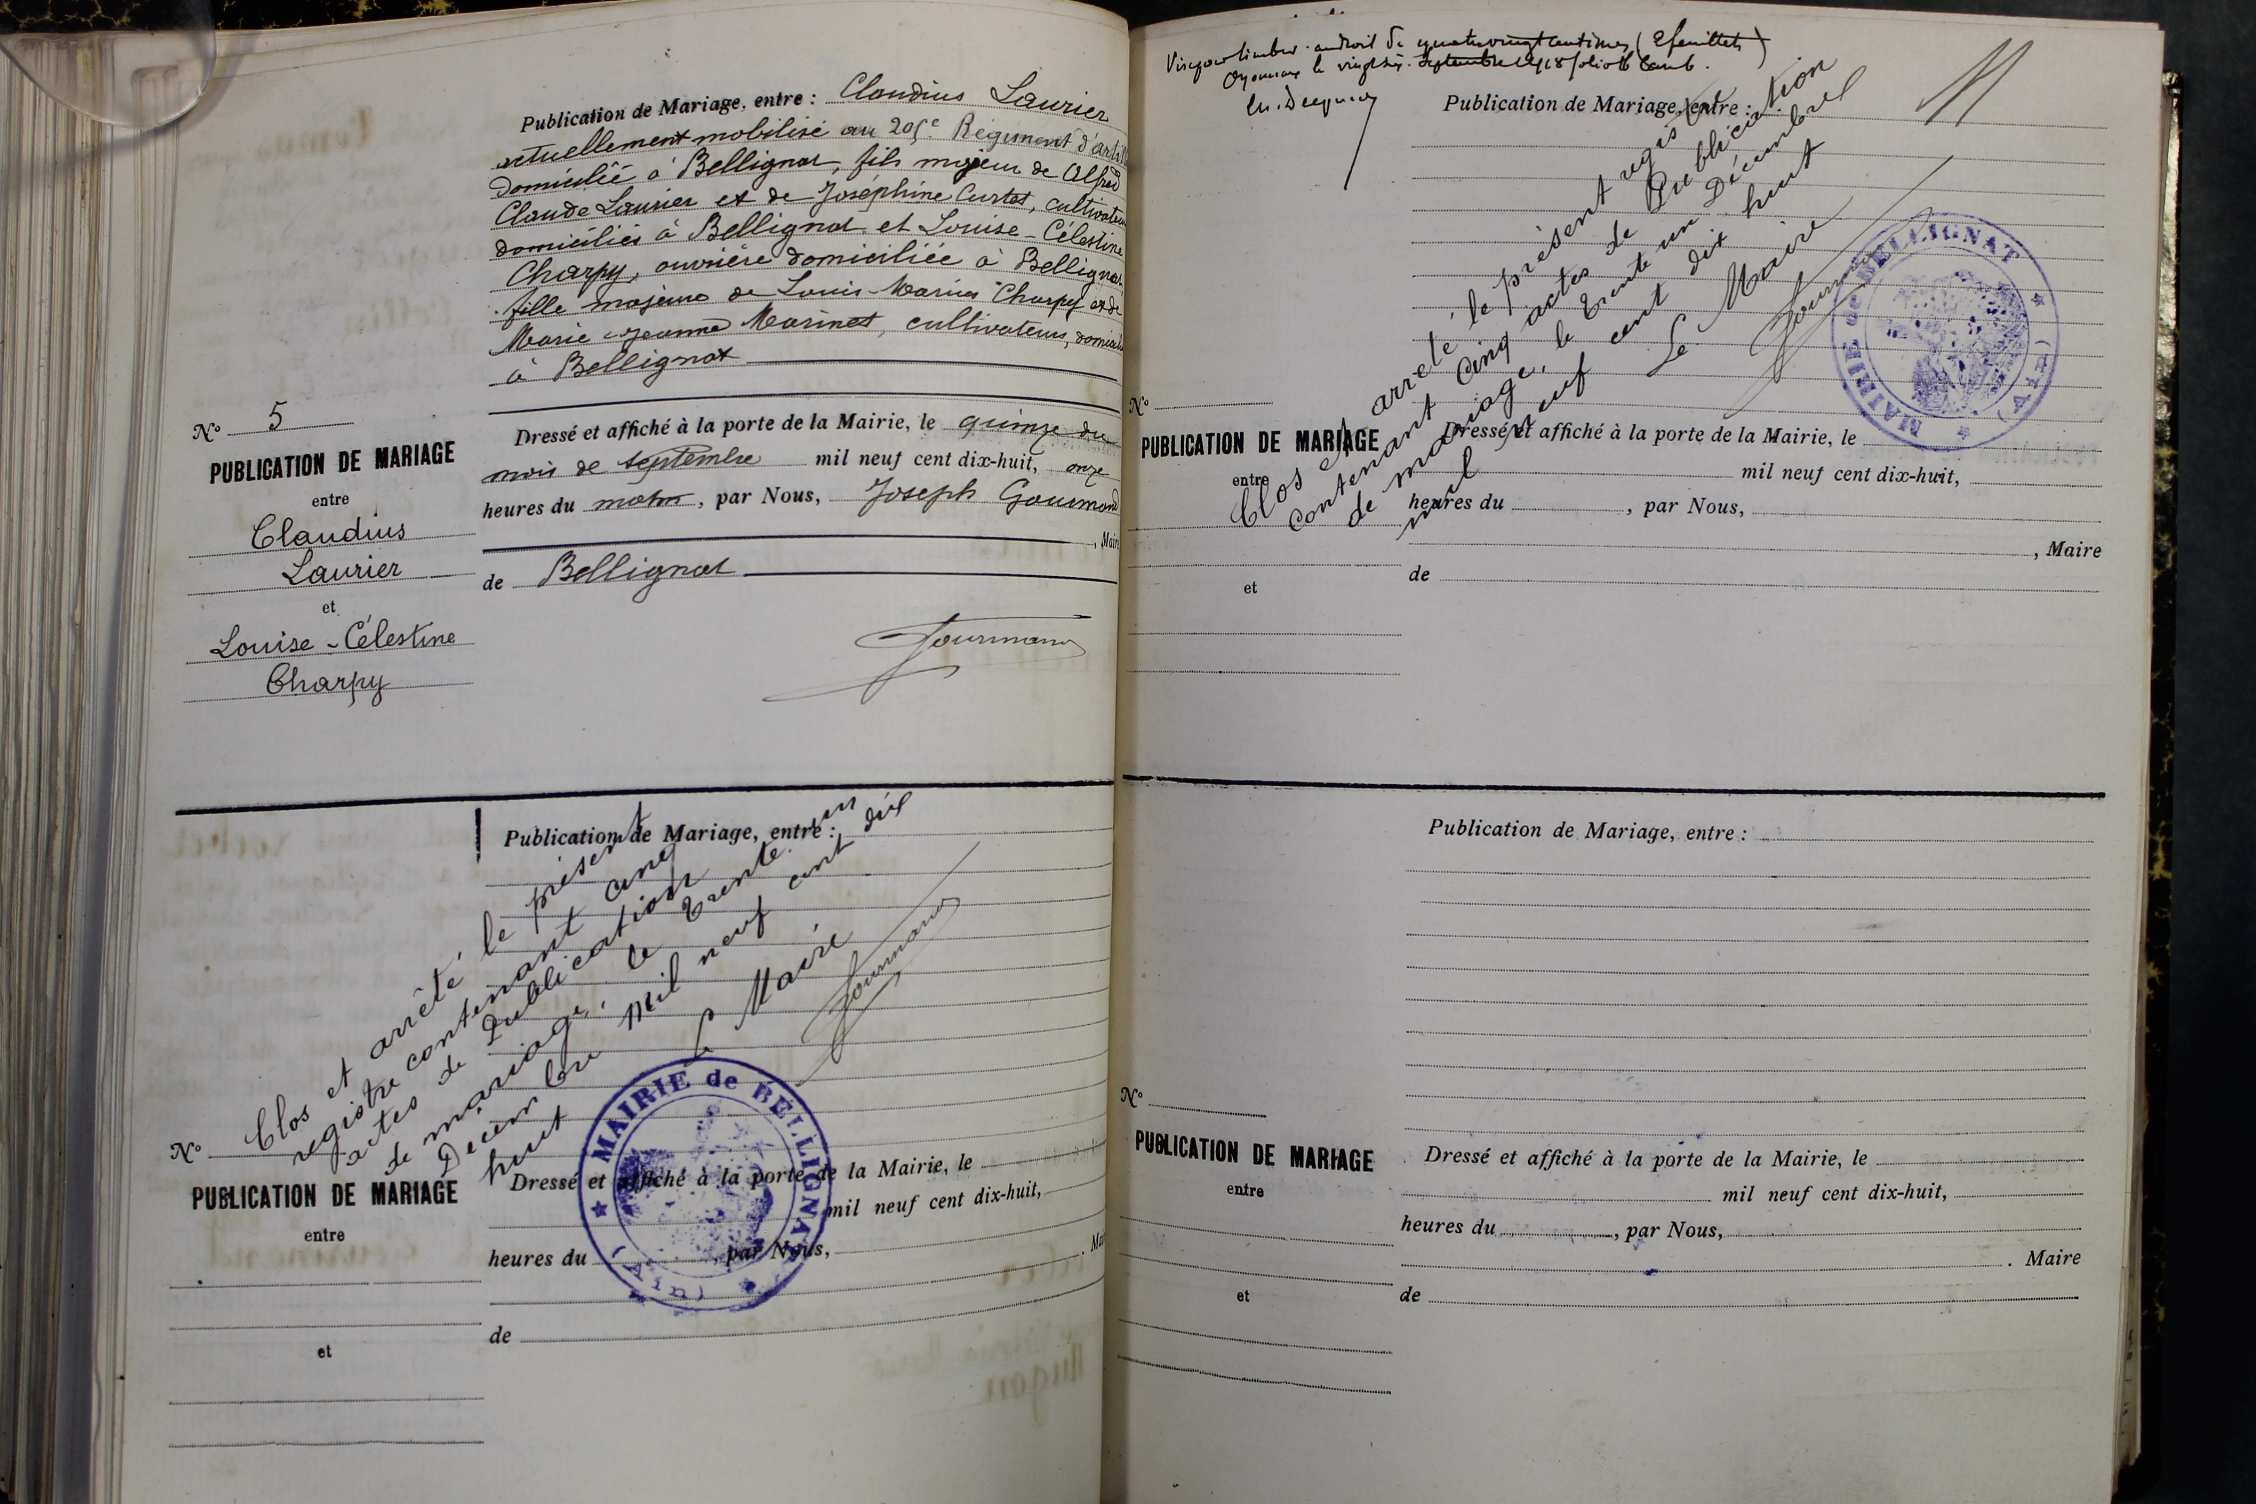 Publication de Mariage, entre : Claudius Laurier
actuellement mobilisé au 205e Régiment d'artil
domicilié à Bellignat, fils majeur de Alfred
Claude Laurier et de Joséphine Curtet, cultivateurs
domiciliés à Bellignat et Louise-Célestine
Charpy, ouvrière domiciliée à Bellignat,
fille majeure de Louis Marius Charpy et de
Marie Jeanne Marinet, cultivateurs, domiciliés
à Bellignat
No 5
PUBLICATION DE MARIAGE
entre
Claudius
Laurier
et
Louise-Célestine
Charpy
Dressé et affiché à la porte de la Mairie, le quinze du
mois de septembre mil neuf cent dix-huit, onze
heures du matin, par Nous, Joseph Gourmand
, Maire
de Bellignat
Gourmand
Publication de Mariage, entre :
Clos et arrêté le présent
registre contenant cinq
actes de Publication
de mariage, le trente-un
Décembre Mil neuf cent dix
huit
Le Maire
Gourmand
MAIRIE de BELLIGNAT
(Ain)
No
PUBLICATION DE MARIAGE
entre
et
Dressé et affiché à la porte de la Mairie, le
mil neuf cent dix-huit,
heures du , par Nous,
. Mai
de
Visé pour timbre au droit de quatre vingt centimes (2 feuillets)
Oyonnax le vingt six septembre 1918 folio
11
Publication de Mariage, entre :
Clos et arrêté le présent registre
contenant cinq actes de Publication
de mariage, le trente un Décembre
mil neuf cent dix huit
Le Maire
Gourmand
MAIRIE de BELLIGNAT
(Ain)
No
PUBLICATION DE MARIAGE
entre
et
Dressé et affiché à la porte de la Mairie, le
mil neuf cent dix-huit,
heures du , par Nous,
, Maire
de
Publication de Mariage, entre :
No
PUBLICATION DE MARIAGE
entre
et
Dressé et affiché à la porte de la Mairie, le
mil neuf cent dix-huit,
heures du , par Nous,
. Maire
de